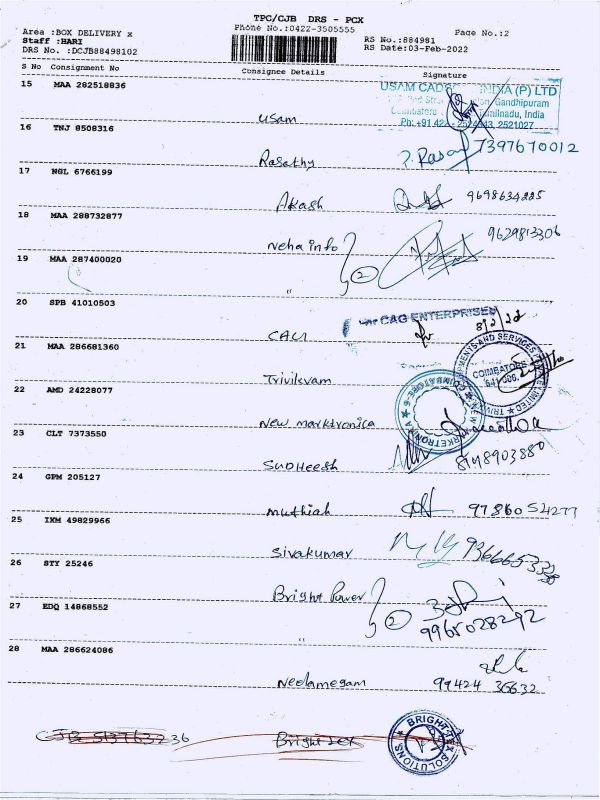 TPC/CJB DRS - PCX
Area :BOX DELIVERY x Phone No.:0422-3505555 Page No.:2
Staff :HARI RS No.:884981
DRS No. :DCJB88498102 RS Date:03-Feb-2022
S No Consignment No Consignee Details Signature
15 MAA 282518836
USAM CAD INDIA (P) LTD
Gandhipuram
Coimbatore Tamilnadu, India
usam Ph: +91 422 2521027
16 TNJ 8508316
Rasathy P. Rasa 7397670012
17 NGL 6766199
Akash 9698634225
18 MAA 288732877
Neha info 9629813306
19 MAA 287400020
2
"
20 SPB 41010503
For CAG ENTERPRISES
CAG 8/2/22
21 MAA 286681360
Trivikram
COIMBATORE
641 006.
22 AMD 24228077
New marktronica
NEW MARKETRONIKA ★ COIMBATORE-6 ★
23 CLT 7373550
Sudheesh 8148903880
24 GPM 205127
muthiah 97860 54277
25 IXM 49829966
Sivakumar
26 STY 25246
Bright Power
27 EDQ 14868552
2 9965028292
"
28 MAA 286624086
Neelamegam 99424 36632
CJB 513763236 Bright tex
BRIGHT TEX SOLUTIONS